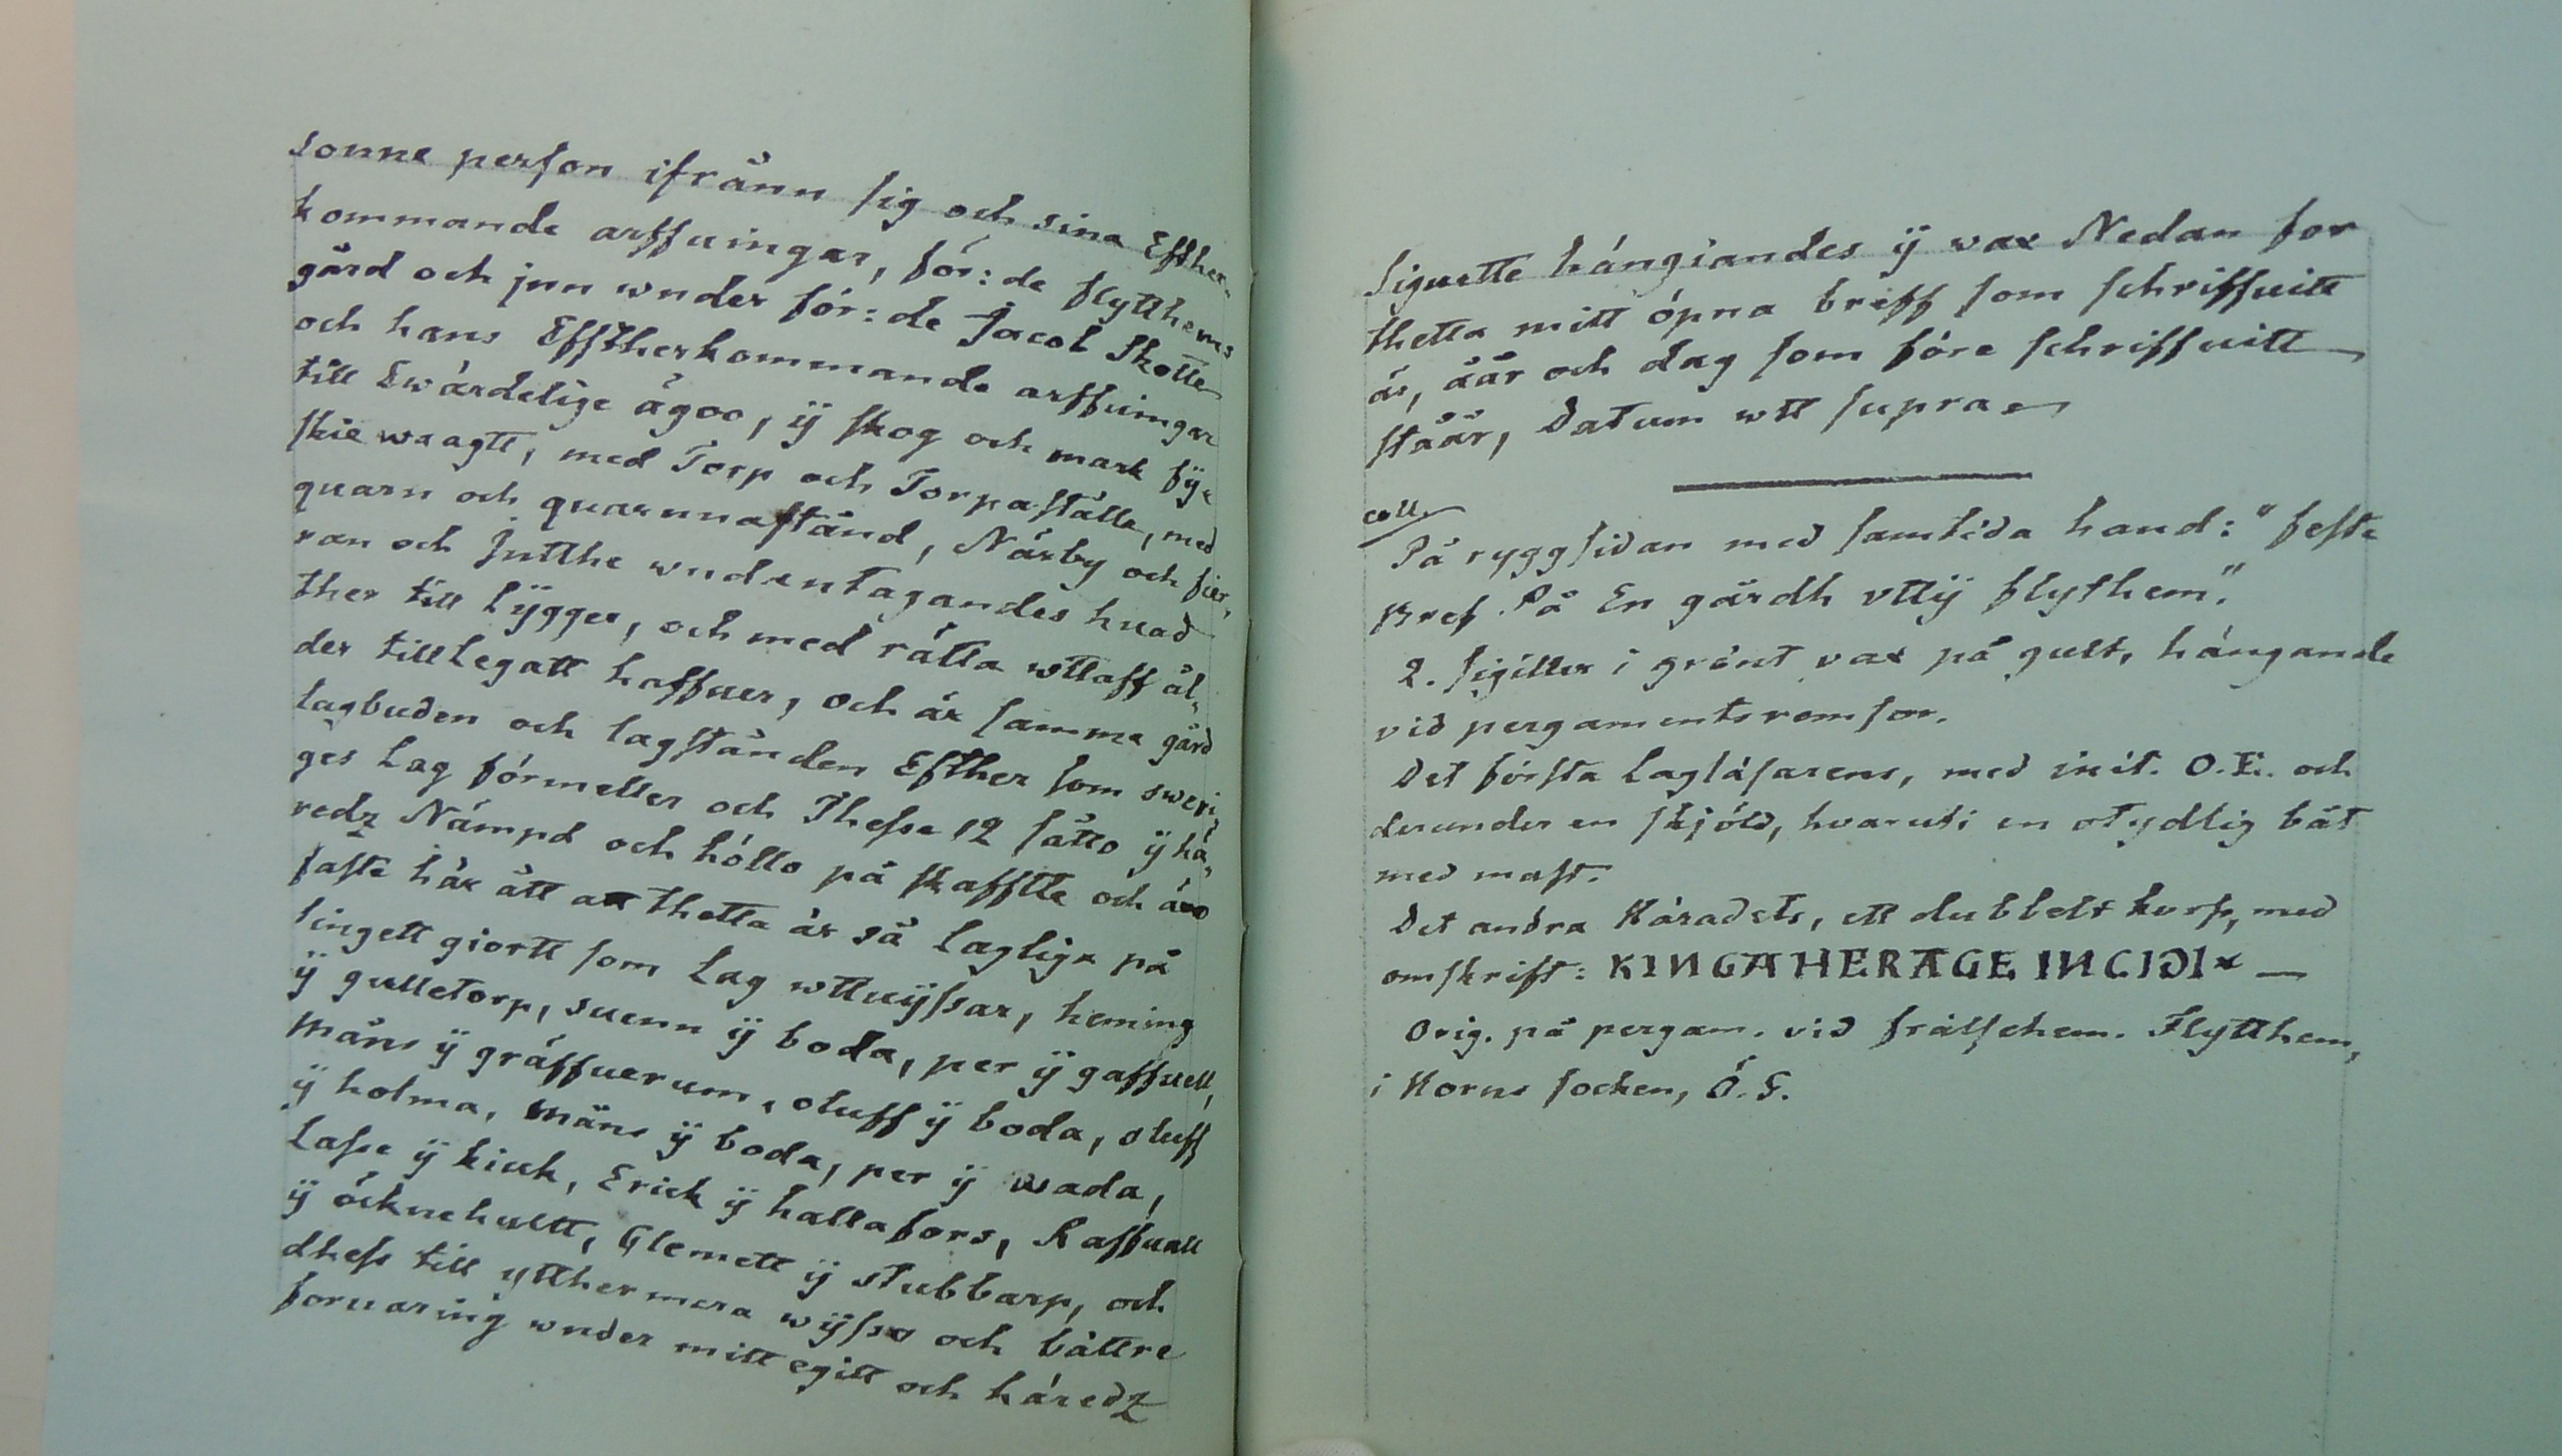 sonne person ifrånn sig och sina Effther-
kommande arffuingar, för:de flytthems
gård och jnn wnder för:de Jacob Skotte
och hans Efftherkommande arffuingar
till Ewärdelige ägoo, ÿ skog och mark fÿ-
skie waagtt, med Torp och Torpaställe, med
quarn och quarnnaständ, Närby och fier-
ran och Jntthe wndentagandes huad
ther till lÿgger, och med rätta wttaff ål-
der till legatt haffuer, och är samma gård
lagbuden och lagstånden Effther som sweri-
ges Lag förmeller och Thesse 12 såtto ÿ hä-
redz Nämpd och höllo på skafftte och äro
faste här ått att thetta är så laglige på
tingett giortt som Lag wttuÿssar, heming
ÿ gulletorp, suenn ÿ boda, per ÿ gaffuell,
Måns ÿ gräffuerum, oluff ÿ boda, oluff
ÿ holma, Måns ÿ boda, per ÿ wada,
Lasse ÿ kiuk, Erick ÿ hallafors, Raffuall
ÿ öcknehultt, Glemett ÿ stubbarp, och
dhess till ytthermera wÿsso och bättre
foruaring wnder mitt egitt och häredz
Signette hängiandes ÿ vax Nedan for
thetta mitt öpna breff som schriffuitt
är, åår och dag som före schriffuitt
ståår, Datum wtt supra
coll.
På ryggsidan med samtida hand: "feste
Bref På En gårdh vttÿ flythem".
2. sigiller i grönt vax på gult, hängande
vid pergamentsremsor.
Det första Lagläsarens, med init. O.E. och
derunder en sköld, hvaruti en otydlig båt
med mast.
Det andra Häradets, ett dubbelt kors, med
omskrift: KINGAHERAGE INCIGI* —
Orig. på pergam. vid frälsehem. Flytthem,
i Horns socken, Ö.G.